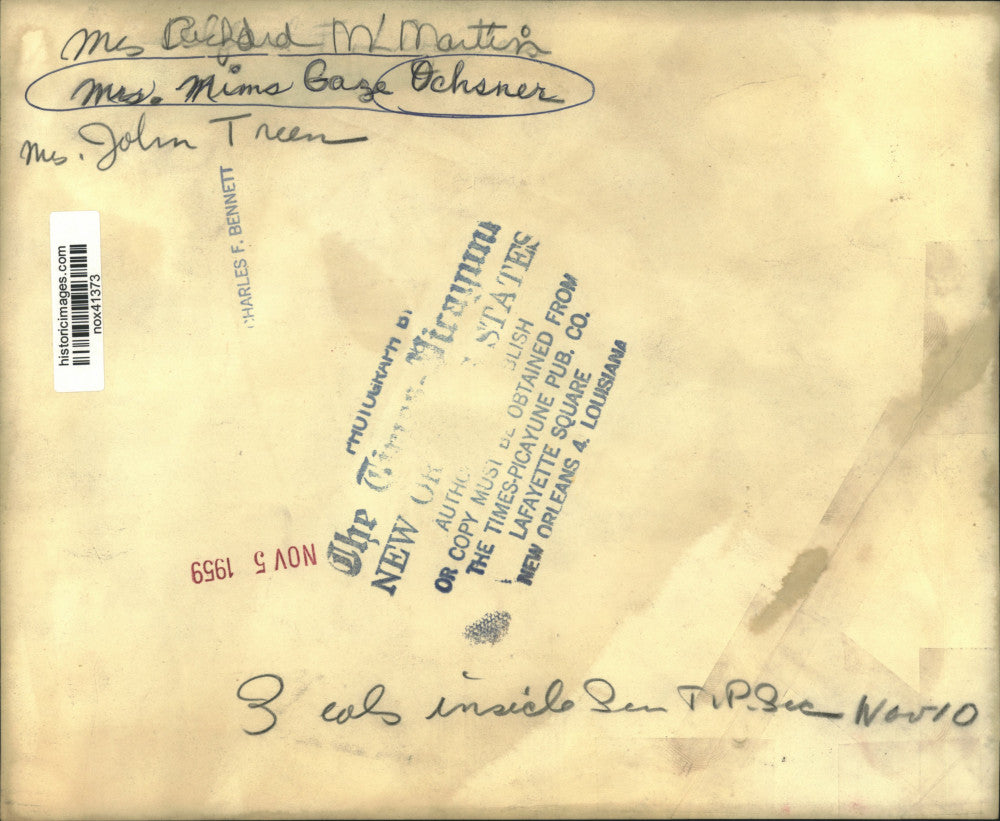 Mrs Richard M Martin
Mrs. Mims Gage Ochsner
Mrs. John Treen
CHARLES F. BENNETT
historicimages.com
nox41373
PHOTOGRAPH BY
The Times-Picayune
NEW OR STATES
AUTHO BLISH
OR COPY MUST BE OBTAINED FROM
THE TIMES-PICAYUNE PUB. CO.
LAFAYETTE SQUARE
NEW ORLEANS 4, LOUISIANA
NOV 5 1959
3 cols inside Sun T.P. Sec Nov 10